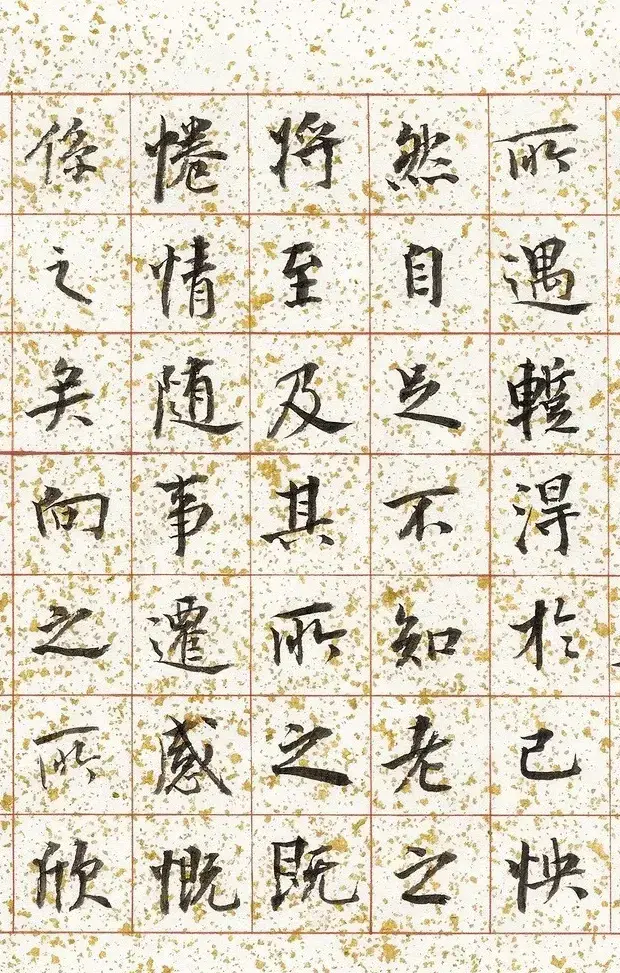 所遇蹔得於己怏
然自足不知老之
將至及其所之既
惓情隨事遷感慨
係之矣向之所欣